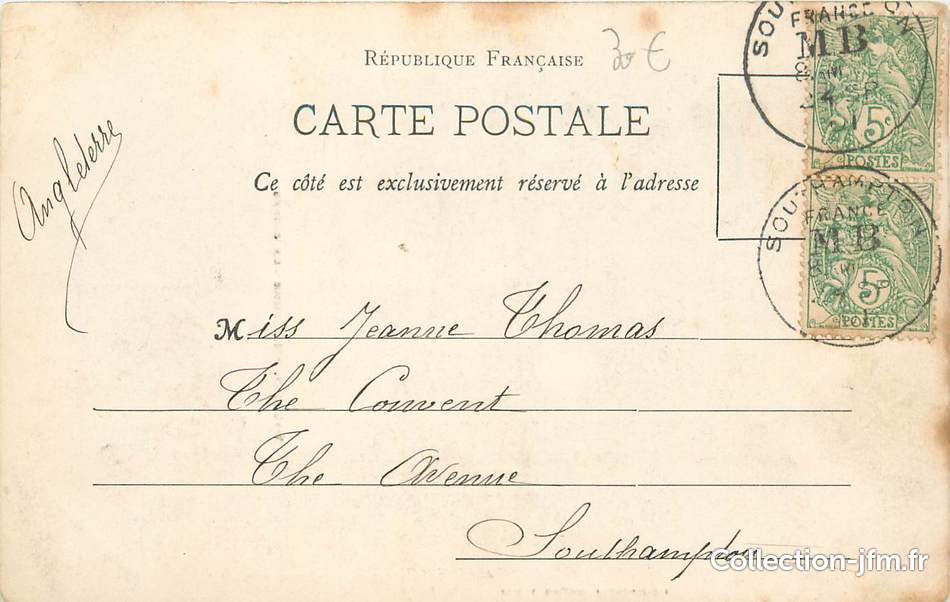 République Française
30 €
CARTE POSTALE
Ce côté est exclusivement réservé à l'adresse
Angleterre
SOUTHAMPTON
FRANCE
MB
5c
POSTES
SOUTHAMPTON
FRANCE
MB
5c
POSTES
Miss Jeanne Thomas
The Convent
The Avenue
Southampton
Collection-jfm.fr